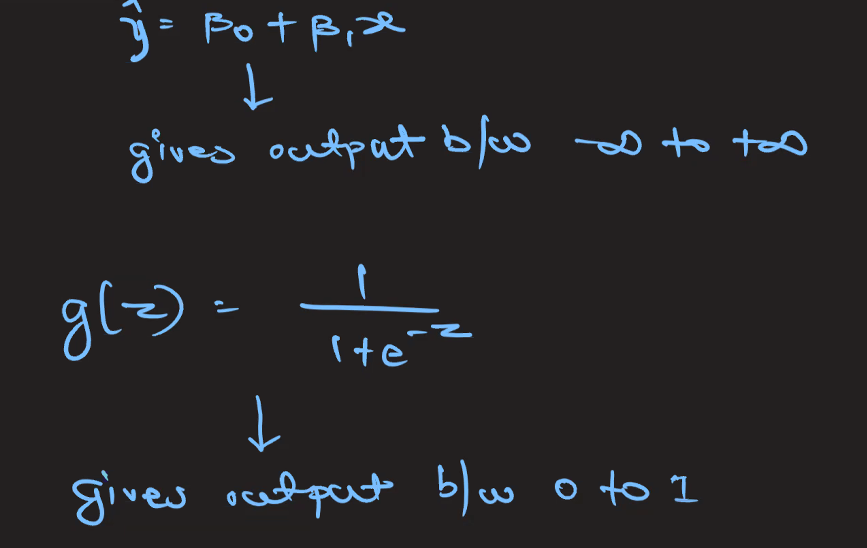 ŷ = β₀ + β₁x
↓
gives output b/w -∞ to +∞
g(z) = 1 / (1+e^(-z))
↓
gives output b/w 0 to 1